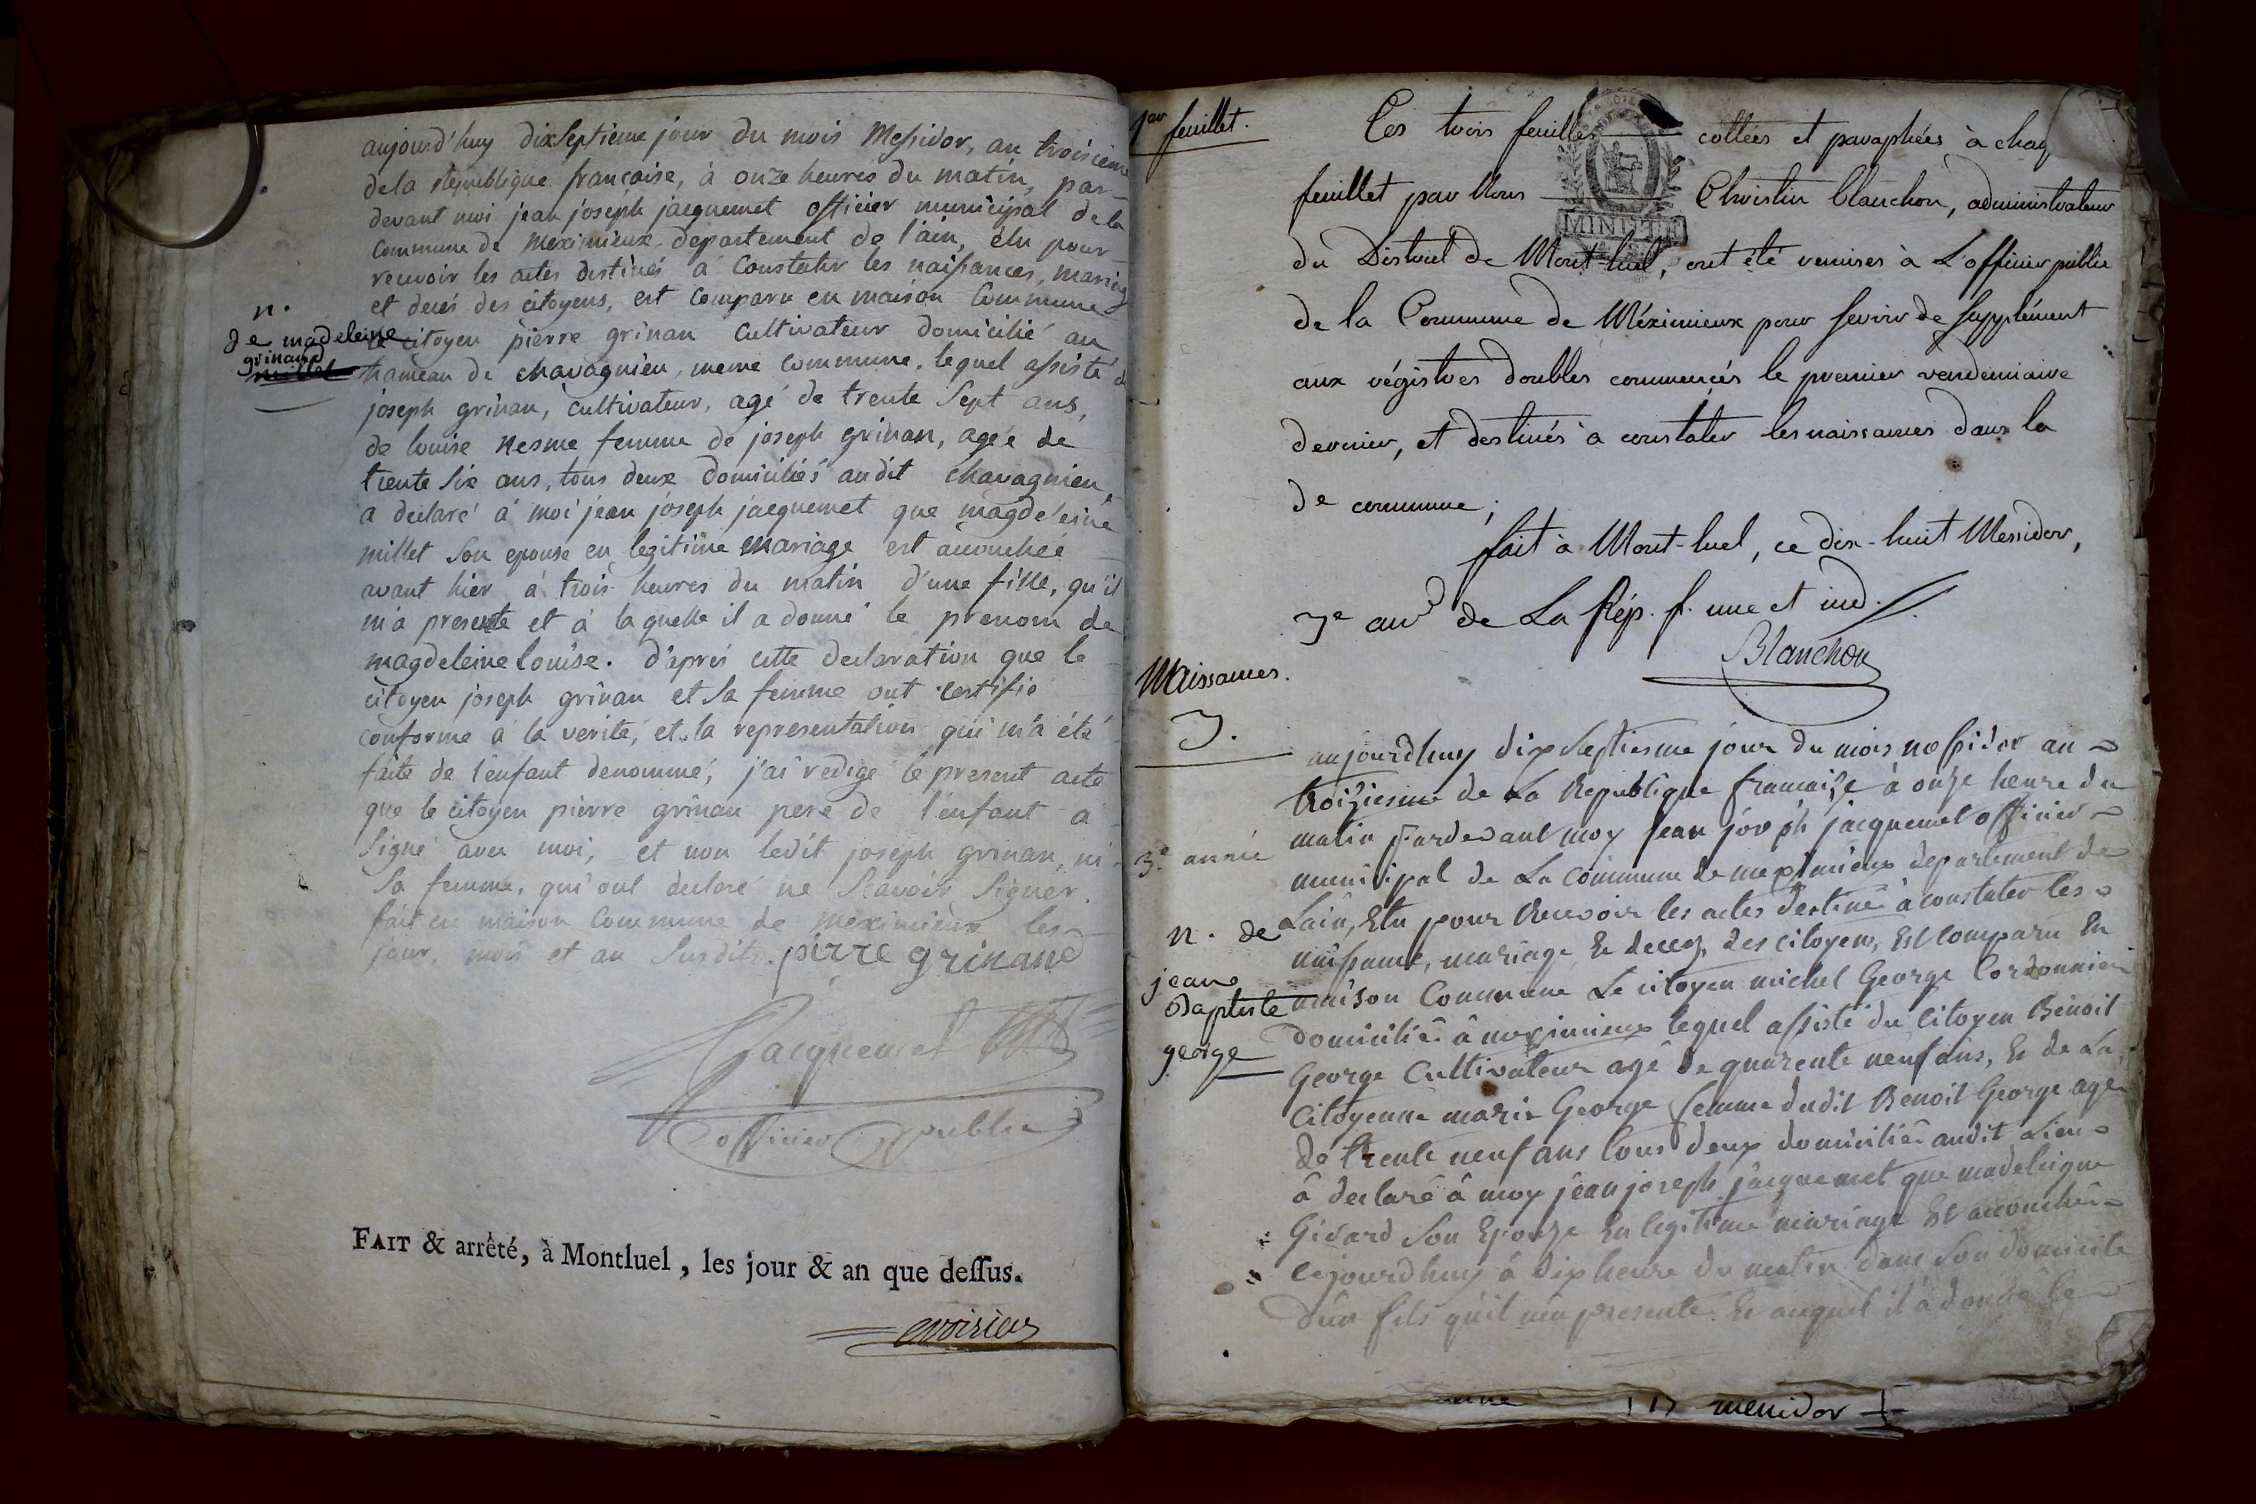 aujourd'huy dixseptieme jour du mois Messidor, an troisieme
de la republique française, à onze heures du matin, par
devant moi jean joseph jacquemet officier municipal de la
commune de meximieux, departement de l'ain, élu pour
recevoir les actes destinés a constater les naissances, mariag
et decés des citoyens, est comparu en maison commune
n.
de madeleine
grinand
millet
le citoyen pierre grinan cultivateur domicilié au
hameau de chavagnieu, meme commune, lequel assisté d
joseph grinan, cultivateur, agé de trente sept ans,
de louise nesme femme de joseph grinan, agée de
trente six ans, tous deux domiciliés audit chavagnieu,
a declaré à moi jean joseph jacquemet que magdeleine
millet son epouse en legitime mariage est accouchée
avant hier à trois heures du matin d'une fille, qu'il
m'a presente et à laquelle il a donné le prenom de
magdeleine louise. d'aprés cette declaration que le
citoyen joseph grinan et sa femme ont certifié
conforme à la verité, et la representation qui m'a été
faite de l'enfant denommé, j'ai redigé le present acte
que le citoyen pierre grinan pere de l'enfant a
signé avec moi, et non ledit joseph grinan, ni
sa femme, qui ont declaré ne scavoir signer.
fait en maison commune de meximieux les
jour, mois et an susdits. pirre grinand
Jacquemet
officier public
FAIT & arrêté, à Montluel, les jour & an que dessus.
1er feuillet.
Ces trois feuilles cottées et paraphées à chaq
feuillet par Nous Christin Blanchon, administrateur
MINUTE
du District de Mont-luel, ont été remises à L'officier public
de la Commune de Méximieux pour servir de supplément
aux régistres doubles commencés le premier vendemiaire
dernier, et destinés à constater les naissances dans la
de commune;
fait à Mont-luel, ce dix-huit Messidor,
3e anée de La Rép. f. une et ind.
Blanchon
Naissances.
3.
aujourdhuy dix septiesme jour du mois messidor an
troiziesme de La Republique francaize à onze heure du
matin pardevant moy jean joseph jacquemet officier
3e année
municipal de La commune de meximieux departement de
Lain, Elu pour Recevoir les actes destiné à constater les
n. de
jean
Baptiste
george
naissance, mariage Et decez des citoyens, Est comparu En
maison Commune Le citoyen michel George Cordonnier
domicilié à meximieux lequel assisté du citoyen Benoit
George Cultivateur agé de quarente neuf ans, Et de La
Citoyenne marie George femme dudit Benoit George agé
de trente neuf ans tous deux domicilié audit Lieu
à declaré à moy jean joseph jacquemet que madeleigne
Givard son Epouze En legitime mariage Est accouché
cejourdhuy à dix heure du matin dans son domicile
dun fils quil ma presenté Et auquel il à donné le
17 messidor